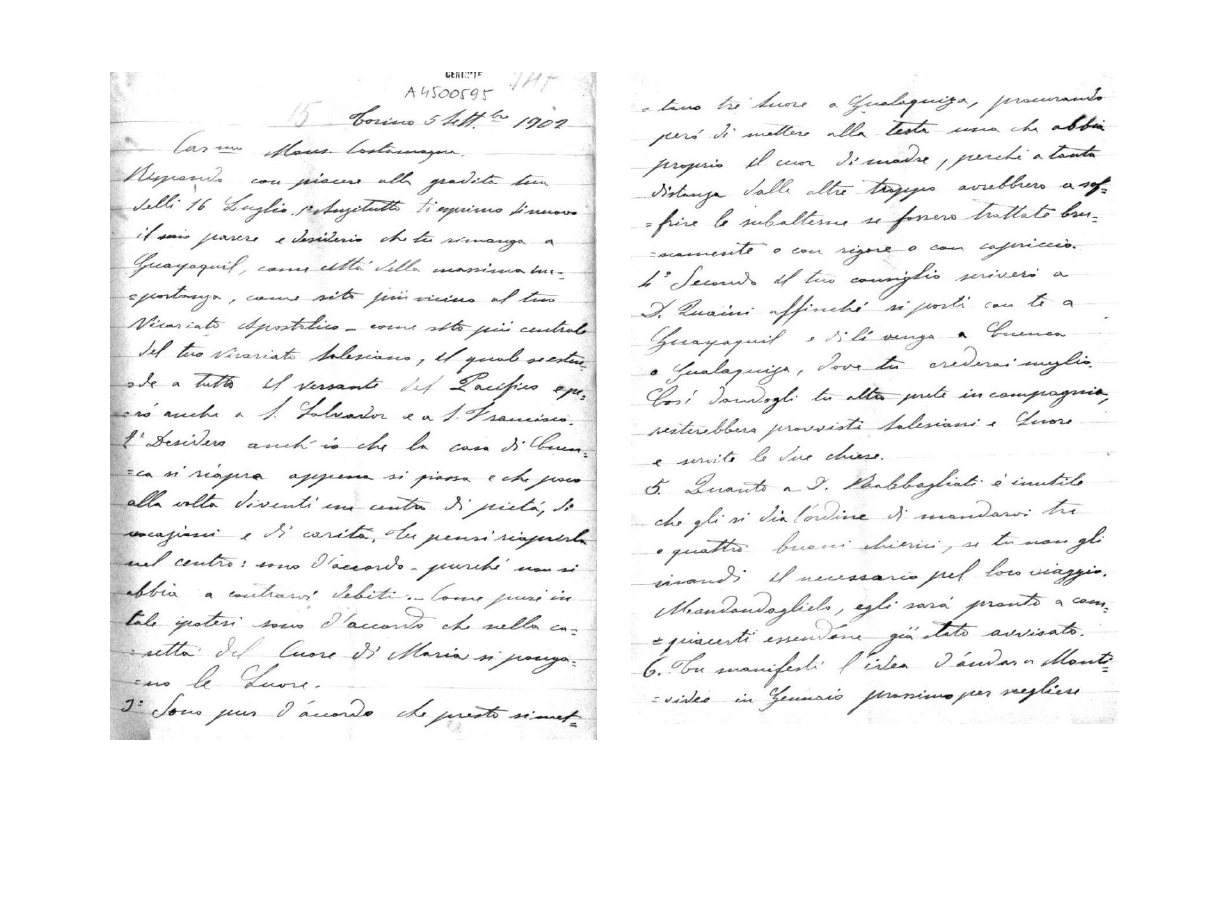 A4500595
15
Torino 5 Sett.bre 1902
Car.mo Mons. Costamagna.
Rispondo con piacere alla gradita tua
delli 16 Luglio. 1° Anzitutto ti esprimo di nuovo
il mio parere e desiderio che tu rimanga a
Guayaquil, come città della massima im-
=portanza, come sito più vicino al tuo
Vicariato Apostolico - come sito più centrale
del tuo Vicariato Salesiano, il quale si esten-
nde a tutto il versante del Pacifico e pe-
=rò anche a S. Salvador e a S. Francisco.
2° Desidero anch'io che la casa di Cuen-
=ca si riapra appena si possa e che poco
alla volta diventi un centro di pietà, di
vocazioni e di carità. Tu pensi riaprirla
nel centro: sono d'accordo - purché non si
abbia a contrarvi debiti. - Come pure in
tale ipotesi sono d'accordo che nella ca=
=setta del Cuore di Maria si ponga=
=no le Suore.
3° Sono pur d'accordo che presto si met=
=tano tre Suore a Gualaquiza, procurando
però di mettere alla testa una che abbia
proprio il cuor di madre, perché a tanta
distanza dalle altre troppo avrebbero a sof=
=frire le subalterne se fossero trattate bru=
=scamente o con rigore o con capriccio.
4° Secondo il tuo consiglio scriverò a
D. Quaini affinché si porti con te a
Guayaquil e di lì venga a Cuenca
o Gualaquiza, dove tu crederai meglio.
Così dandogli tu altro prete in compagnia,
resterebbero provvisti Salesiani e Suore
e servite le due chiese.
5. Quanto a D. Rabbagliati è inutile
che gli si dia l'ordine di mandarvi tre
o quattro buoni chierici, se tu non gli
mandi il necessario pel loro viaggio.
Mandandoglielo, egli sarà pronto a com=
=piacerti essendone già stato avvisato.
6. Tu manifesti l'idea d'andar a Monte=
=video in Gennaio prossimo per scegliere